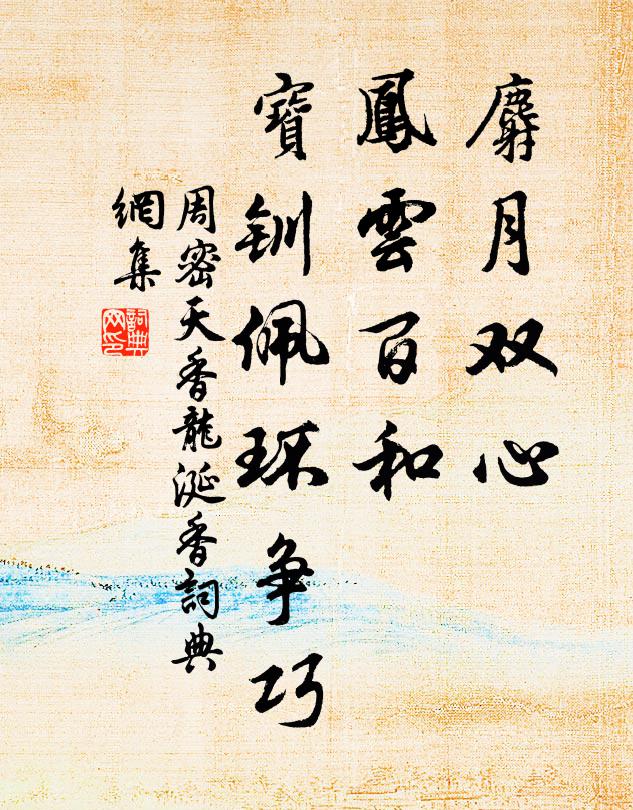 麝月双心
鳳雲百和
寶釧佩环争巧
周密天香龍涎香詞典
網集
詞典
网印